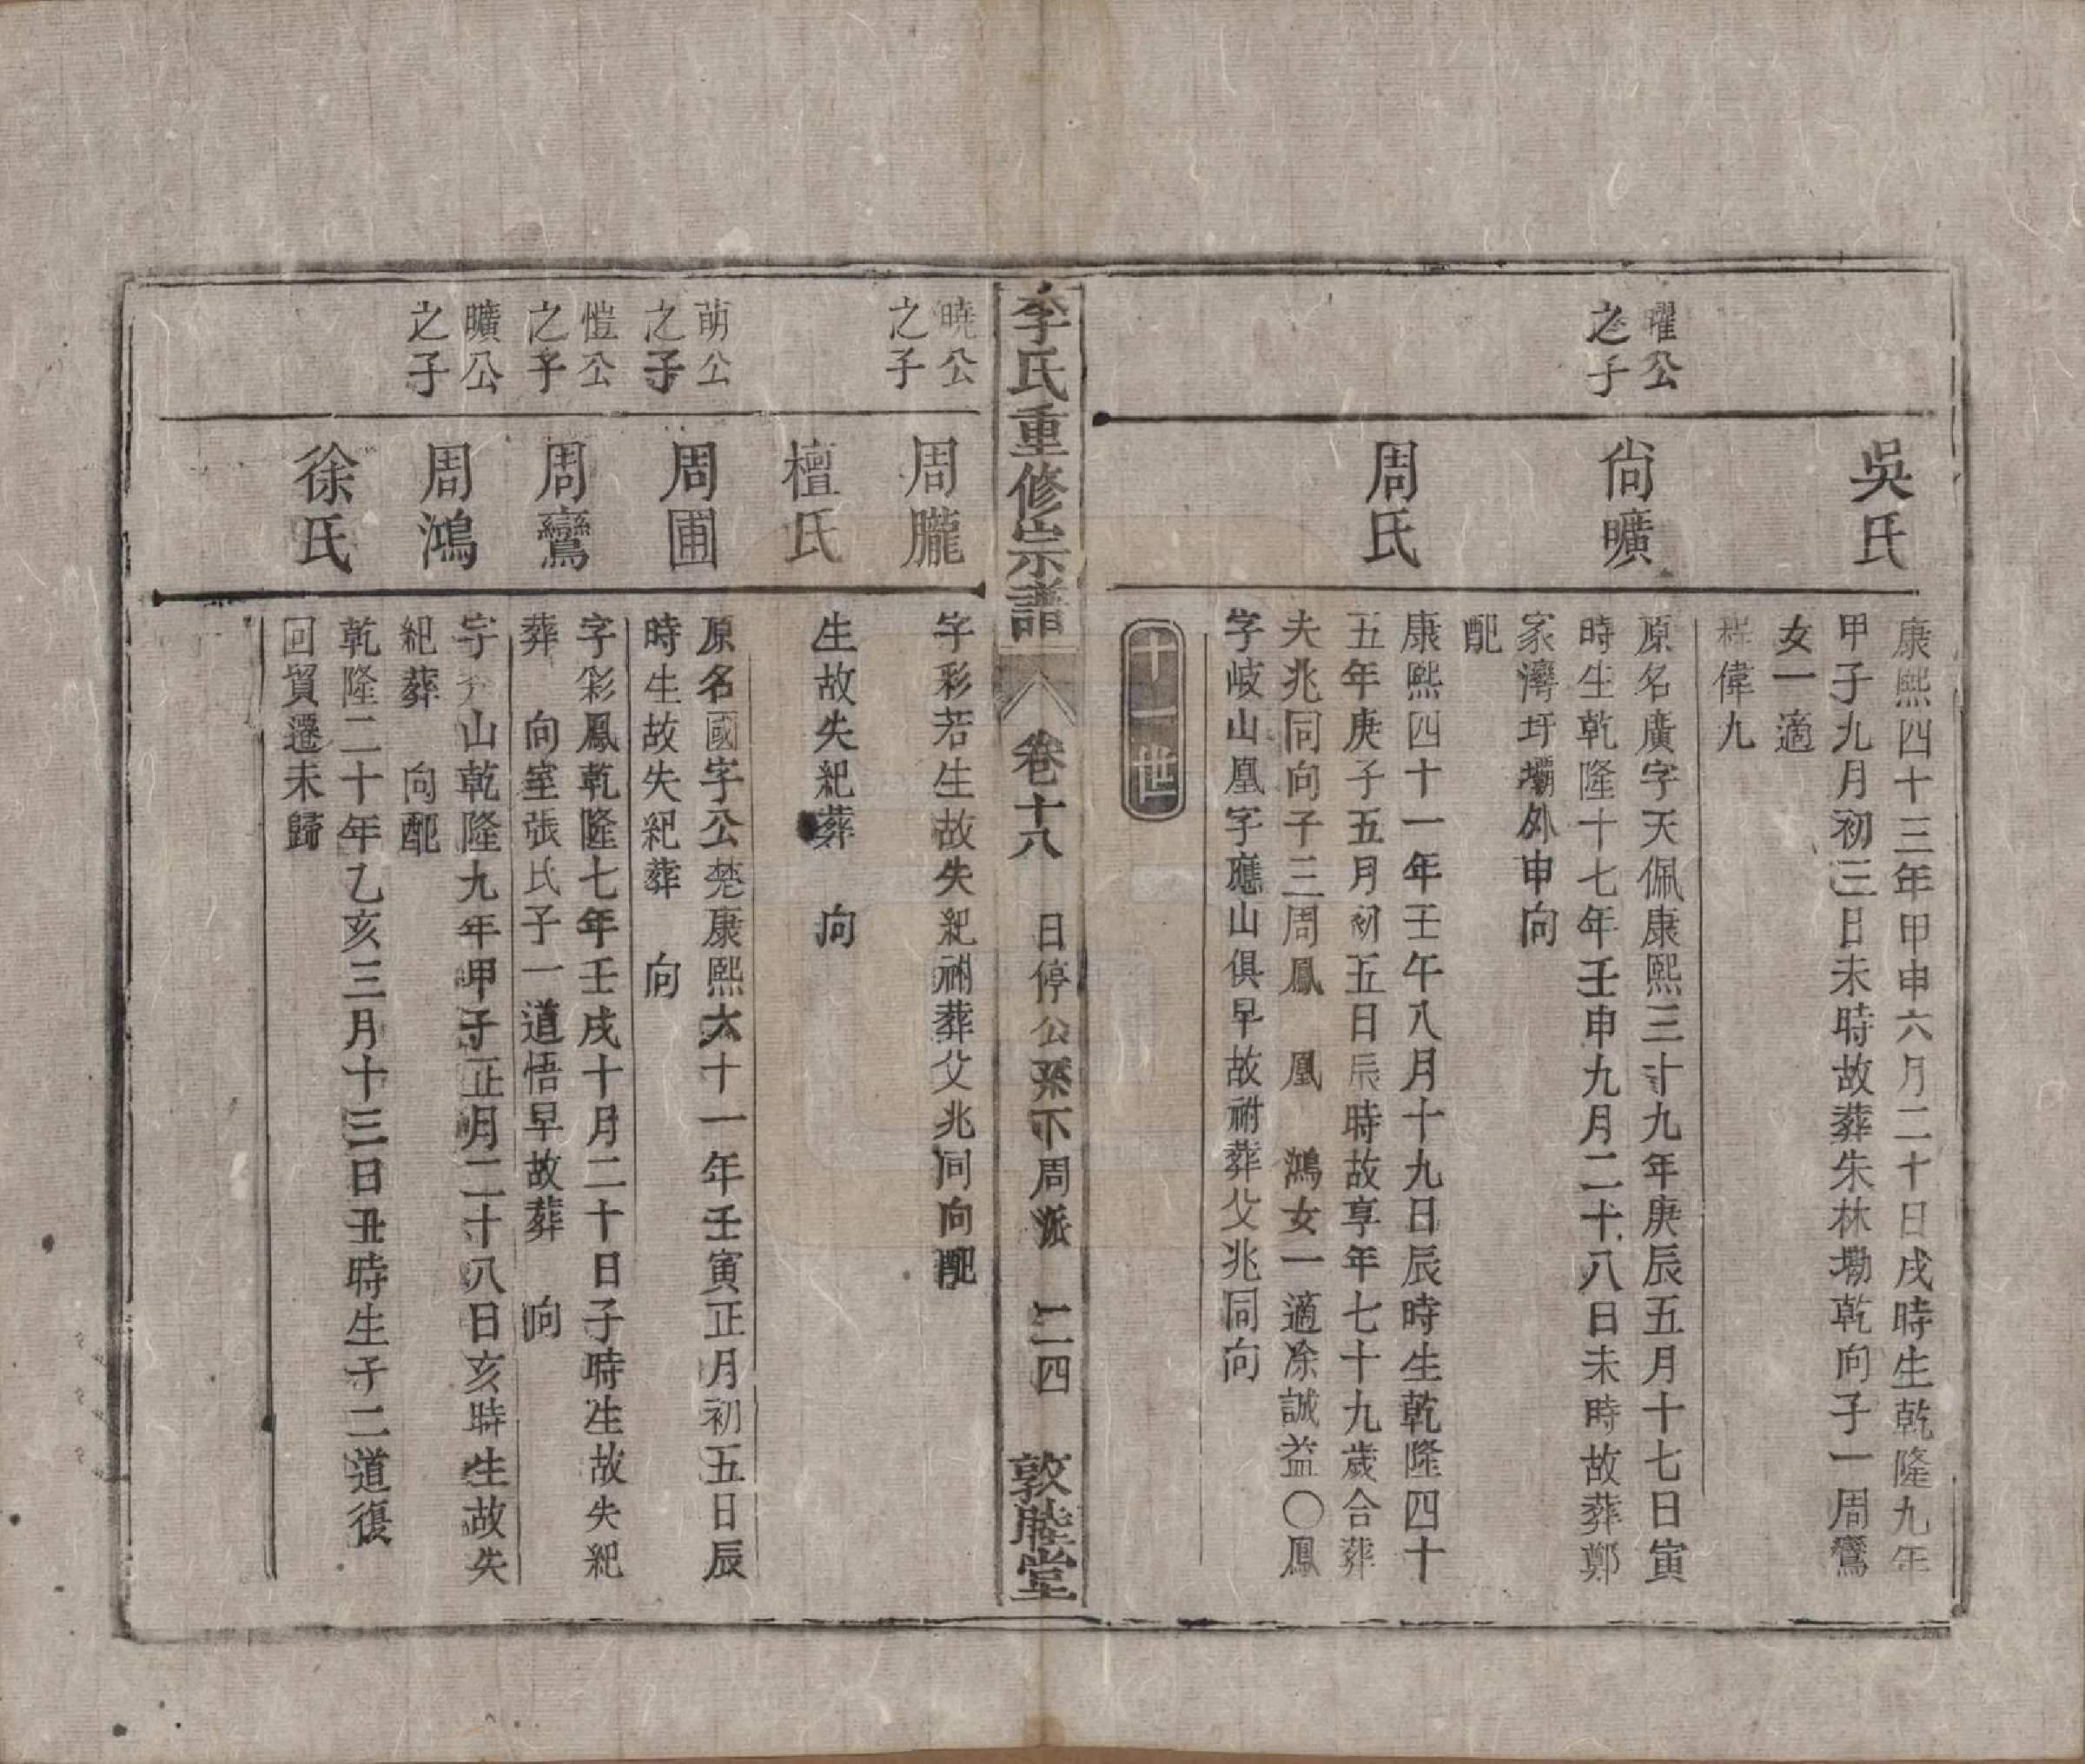 吳氏
康熙四十三年甲申六月二十日戌時生乾隆九年
甲子九月初三日未時故葬朱林墈乾向子一周鸞
女一適
程偉九
曜公
之子
尙曠
原名廣字天佩康熙三十九年庚辰五月十七日寅
時生乾隆十七年壬申九月二十八日未時故葬鄭
家灣圩壩外申向
配
周氏
康熙四十一年壬午八月十九日辰時生乾隆四十
五年庚子五月初五日辰時故享年七十九歲合葬
夫兆同向子三周鳳 凰 鴻女一適凃誠益〇鳳
字岐山凰字應山俱早故祔葬父兆同向
十一世
李氏重修宗譜
卷十八 日停公系下周派 二四 敦睦堂
曉公
之子
周朧
字彩若生故失紀祔葬父兆同向配
檀氏
生故失紀葬 向
萌公
之子
周圃
原名國字公楚康熙六十一年壬寅正月初五日辰
時生故失紀葬 向
愷公
之子
周鸞
字彩鳳乾隆七年壬戌十月二十日子時生故失紀
葬 向室張氏子一道悟早故葬 向
曠公
之子
周鴻
字山乾隆九年甲子正月二十八日亥時生故失
紀葬 向配
徐氏
乾隆二十年乙亥三月十三日丑時生子二道復
回貿遷未歸